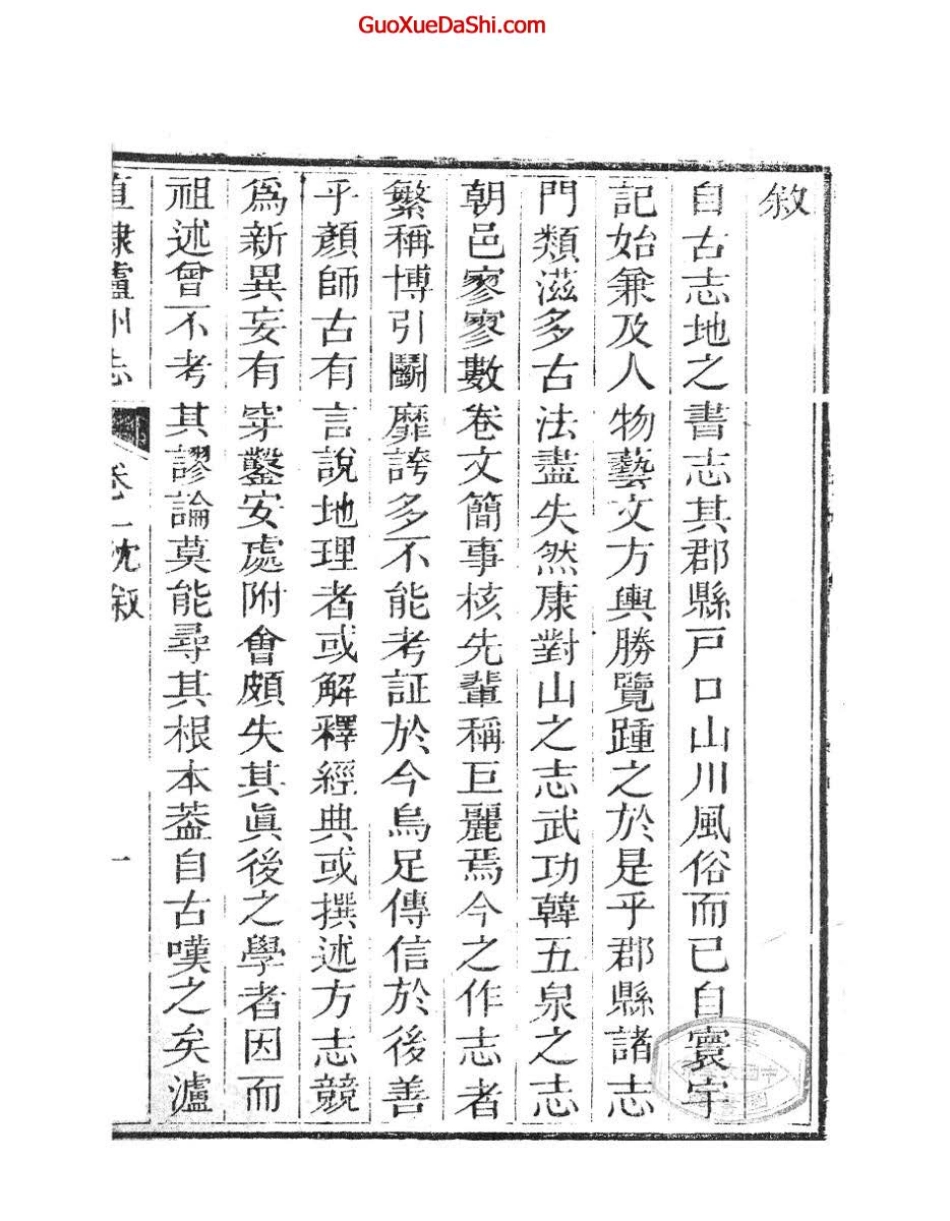 GuoXueDaShi.com
敘
自古志地之書志其郡縣戸口山川風俗而已自寰宇
記始兼及人物藝文方輿勝覽踵之於是乎郡縣諸志
門類滋多古法盡失然康對山之志武功韓五泉之志
朝邑寥寥數卷文簡事核先輩稱巨麗焉今之作志者
繁稱博引鬭靡誇多不能考証於今烏足傳信於後善
乎顏師古有言說地理者或解釋經典或撰述方志競
爲新異妄有穿鑿安處附會頗失其眞後之學者因而
祖述曾不考其謬論莫能尋其根本葢自古嘆之矣瀘
直隸瀘州志 卷一沈敘 一